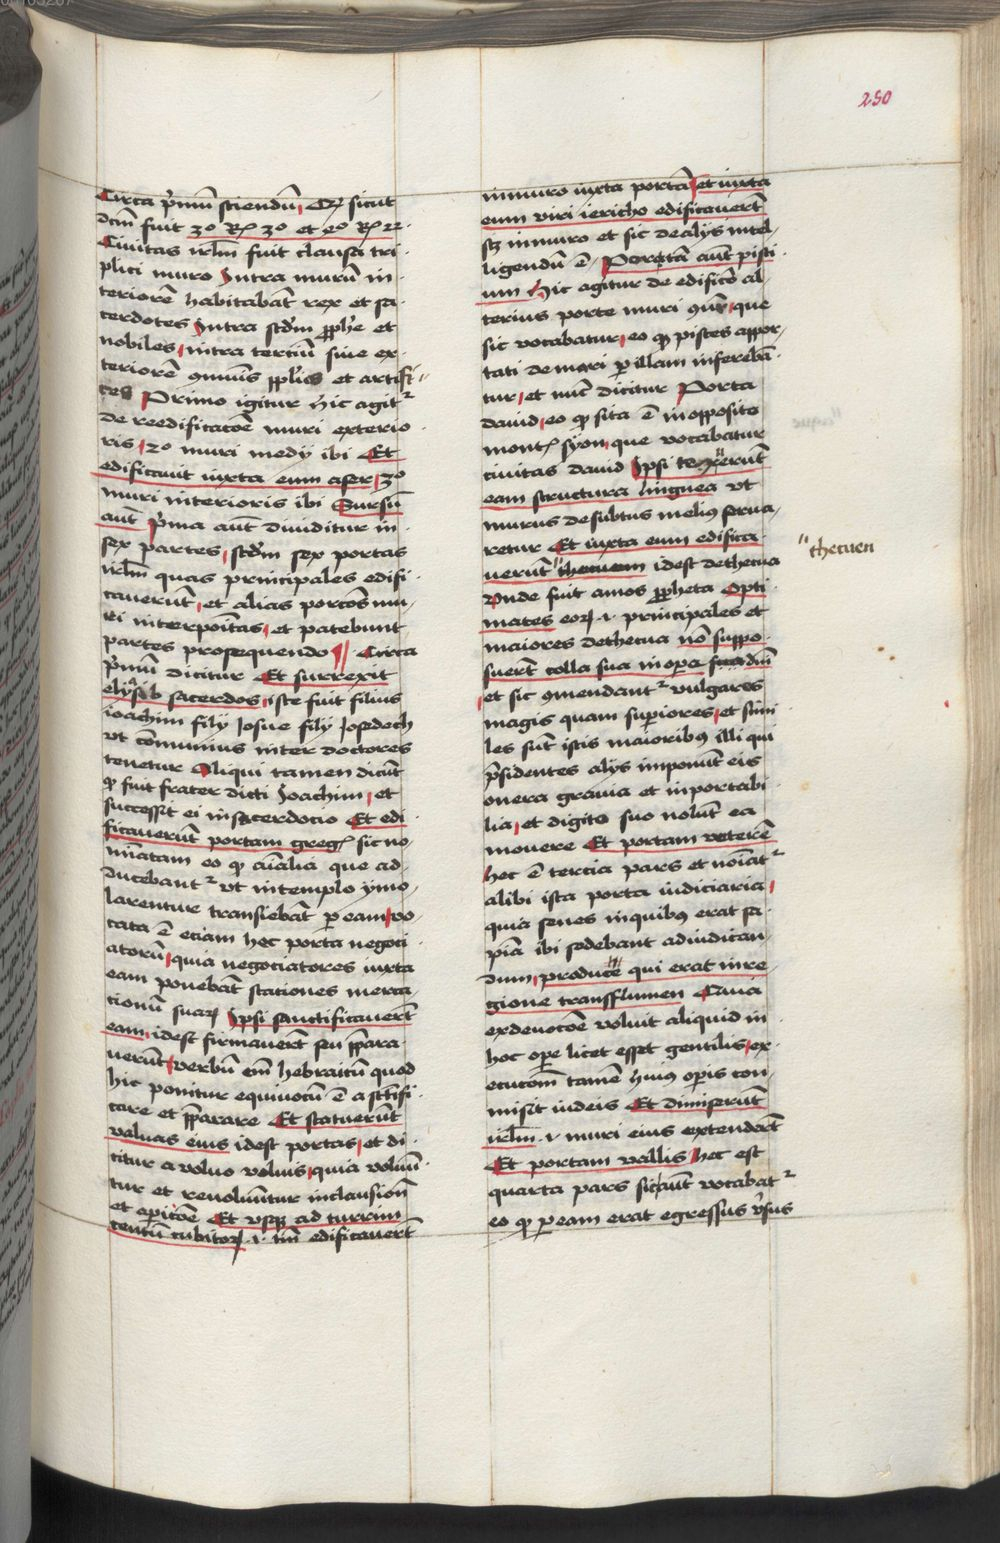 250
Circa p̄mū sciendū, Qꝫ sicut
dcm̄ fuit 3º Rꝫ 3º et 4º Rꝫ 22
Ciuitas irl̄m fuit clausa tri
plici muro Intra murū in
teriorē habitabāt rex et sa
cerdotes Intra scd̄m ꝓph̄e et
nobiles, intra terciū siue ex
teriorē ꝯmunis ppl̄us et artifi
ces Primo igitur hic agitᷣ
de reedificatōe muri exterio
ris, 2º muri medij ibi Et
edificauit iuxta eum aser, 3º
muri interioris ibi Sursū
aūt p̄ma aūt diuiditur in
sex partes, scd̄m sex portas
irl̄m quas principales edifi
cauerūt, et alias porcōs mu
ri interpoītas, et patebunt
partes prosequendo ¶ Circa
p̄mū dicitur Et surrexit
elyasib sacerdos, iste fuit filius
ioachim filij Josue filij Josedech
vt cōmunius inter doctores
tenetur Aliqui tamen dicūt
qꝫ fuit frater dicti Joachim, et
successit ei in sacerdocio Et edi
ficauerūt portam gregꝭ sic no
minatam eo qꝫ aīalia que ad
ducebantᷣ vt in templo ymo
larentur transiebāt ꝑ eam, vo
cata ē eciam hec porta negoci
atorū, quia negociatores iuxta
eam ponebāt stationes merca
tionū suaꝝ Ipsi sanctificauerūt
eam, idest firmauerūt seu p̄para
uerūt, verbū em̄ hebraicū quod
hic ponitur equiuocū ē a sctīfi
care et p̄parare Et statuerūt
valuas eius idest portas, et di
citur a voluo voluis, quia voluū
tur et reuoluūtur in clausionē
et apicōe Et vsqꝫ ad turrim
centū cubitoꝝ .i. im̄ edificauerūt
in muro iuxta portā, et iuxta
eum viri iericho edificauerūt
scꝫ in muro et sic de alijs intel
ligendū ē, Portam aūt pisci
um Hic agitur de edificō al
terius porte muri ꝯmūis, que
sic vocabatur, eo qꝫ pisces appor
tati de mari ꝑ illam inferebā
tur, et nūc dicitur Porta
dauid, eo qꝫ sita ē in opposito
montꝭ syon, que vocabatur
ciuitas dauid Ipsi texerūt
eam structura lingnea vt
murus desubtus meliꝰ serua
retur Et iuxta eum edifica
uerūt thecuem idest de thecua
Vnde fuit amos ꝓpheta Opti
mates eoꝝ .i. principales et
maiores de thecua nō suppo
suerūt colla sua in opere dn̄i
et sic ꝯmendantᷣ vulgares
magis quam superiores, et simi
les sūt istis maioribꝰ illi qui
p̄sidentes alijs imponūt eis
onera grauia et inportabi
lia, et digito suo nolūt ea
mouere Et portam veterē
hec ē tercia pars et noīatᷣ
alibi ista porta iudiciaria,
quia senes in quibꝰ erat sa
pīa ibi sedebant ad iudican
dum, pro duce qui erat in re
gione transflumen Quia
ex deuocōe voluit aliquid in
hoc ope licet esset gentilis, ex
ecucōm tamē hmꝰ operis com
misit iudeis Et dimiserūt
irl̄m .i. muri eius extenderūt
Et portam vallis, hec est
quarta pars sic aūt vocabatᷣ
eo qꝫ ꝑ eam erat egressus v̄sus
"thecuen